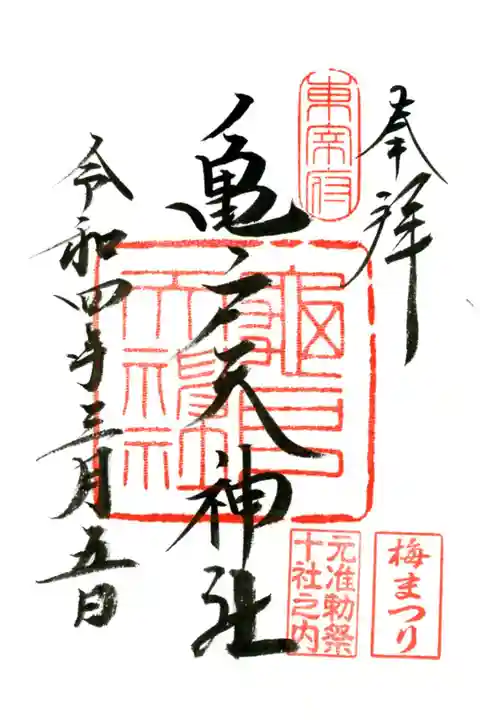 奉拝
東宰府
亀戸天神社
令和四年三月五日
元准勅祭
十社之内
梅まつり